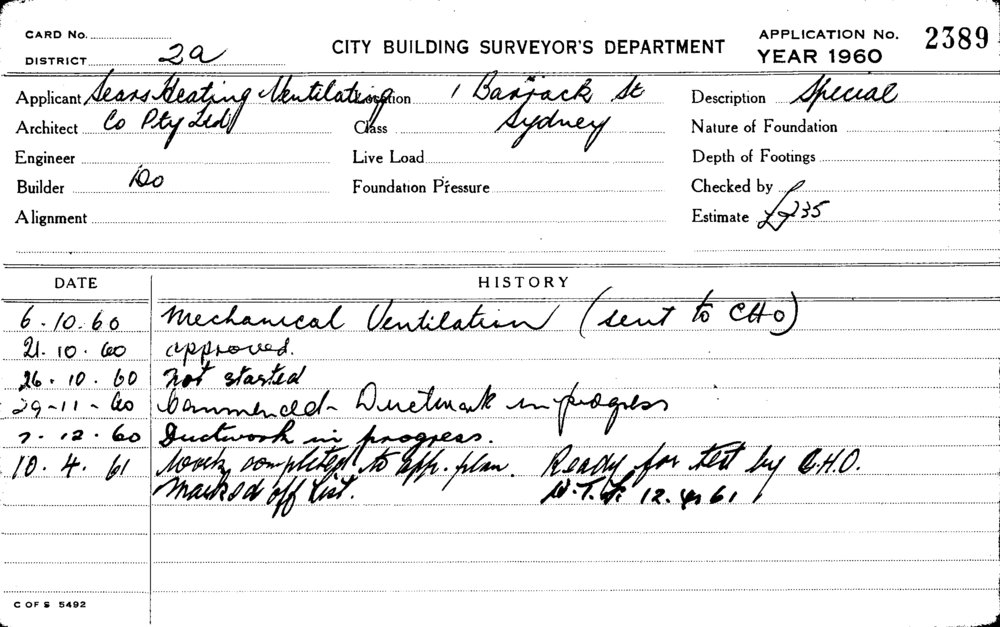 CARD No.
DISTRICT 2a
CITY BUILDING SURVEYOR'S DEPARTMENT
APPLICATION No. 2389
YEAR 1960
Applicant Sears Heating Ventilating Location 1 Barrack St Description Special
Architect Co Pty Ltd Class Sydney Nature of Foundation
Engineer Live Load Depth of Footings
Builder Do Foundation Pressure Checked by
Alignment Estimate £235
DATE HISTORY
6.10.60 Mechanical Ventilation (sent to CHO)
21.10.60 approved.
26.10.60 not started
29-11-60 Commenced - Ductwork in progress
7.12.60 Ductwork in progress.
10.4.61 Work completed to app. plan. Ready for test by C.H.O.
Marked off list. 12.4.61
C OF S 5492